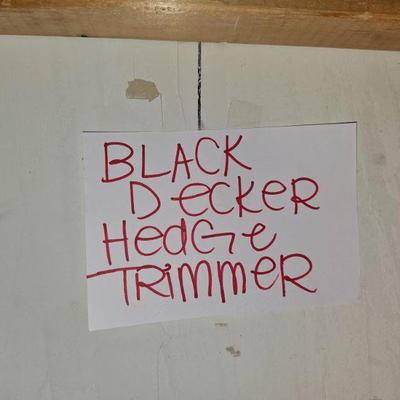 BLACK
DecKER
HedGe
TRimmeR